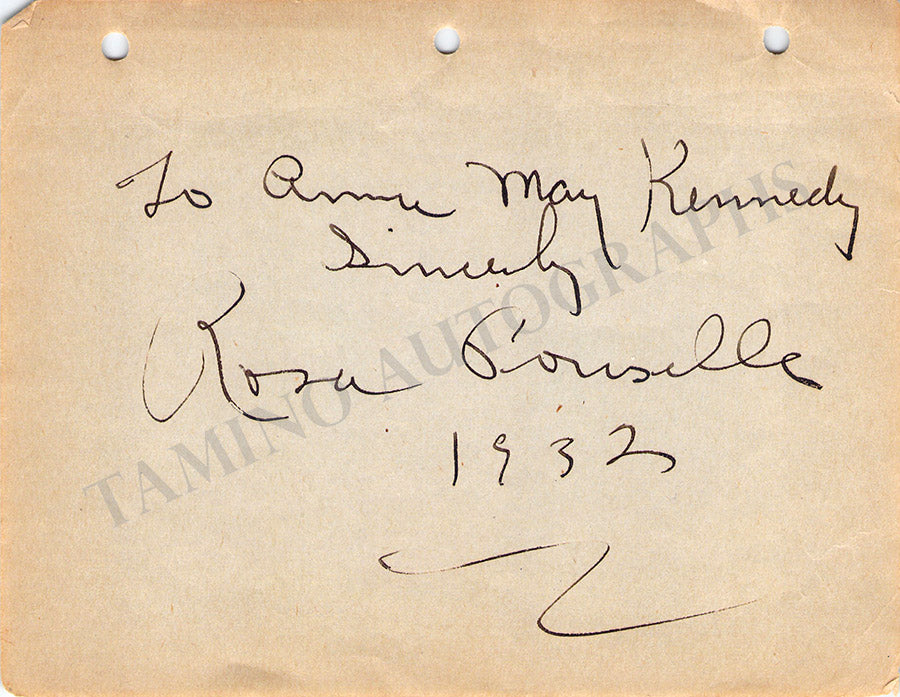 To Anna May Kennedy
Sincerely
Rosa Ponselle
1932
TAMINO AUTOGRAPHS